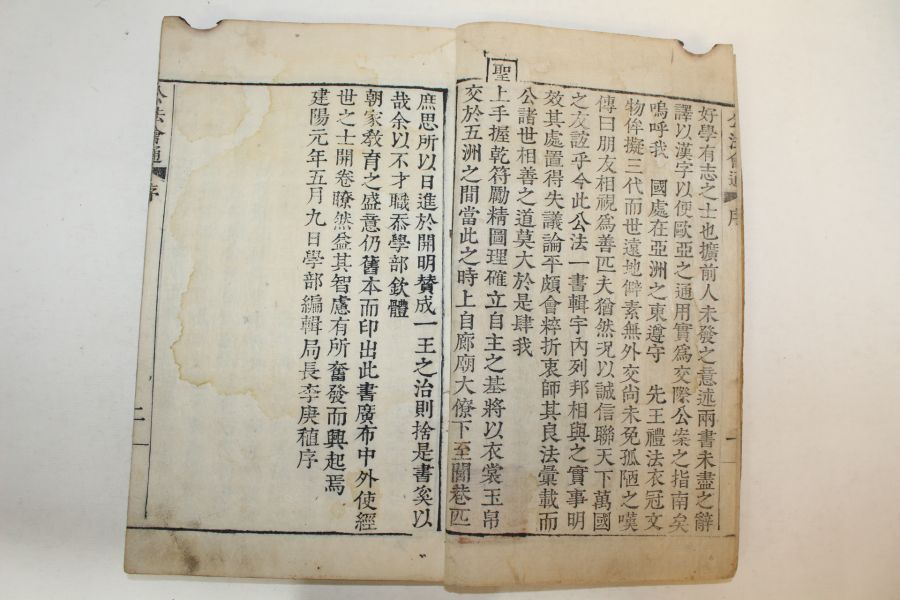 公法會通 序 一
好學有志之士也擴前人未發之意述兩書未盡之辭
譯以漢字以便歐亞之通用實爲交際公案之指南矣
嗚呼我 國處在亞洲之東遵守 先王禮法衣冠文
物侔擬三代而世遠地僻素無外交尙未免孤陋之嘆
傳曰朋友相視爲善匹夫猶然况以誠信聯天下萬國
之友誼乎今此公法一書輯宇內列邦相與之實事明
效其處置得失議論平頗會粹折衷師其良法彙載而
公諸世相善之道莫大於是肆我
聖上手握乾符勵精圖理確立自主之基將以衣裳玉帛
交於五洲之間當此之時上自廊廟大僚下至閭巷匹
庶思所以日進於開明賛成一王之治則捨是書奚以
哉余以不才職忝學部欽體
朝家敎育之盛意仍舊本而印出此書廣布中外使經
世之士開卷瞭然益其智慮有所奮發而興起焉
建陽元年五月九日學部編輯局長李庚稙序
公法會通 序 二